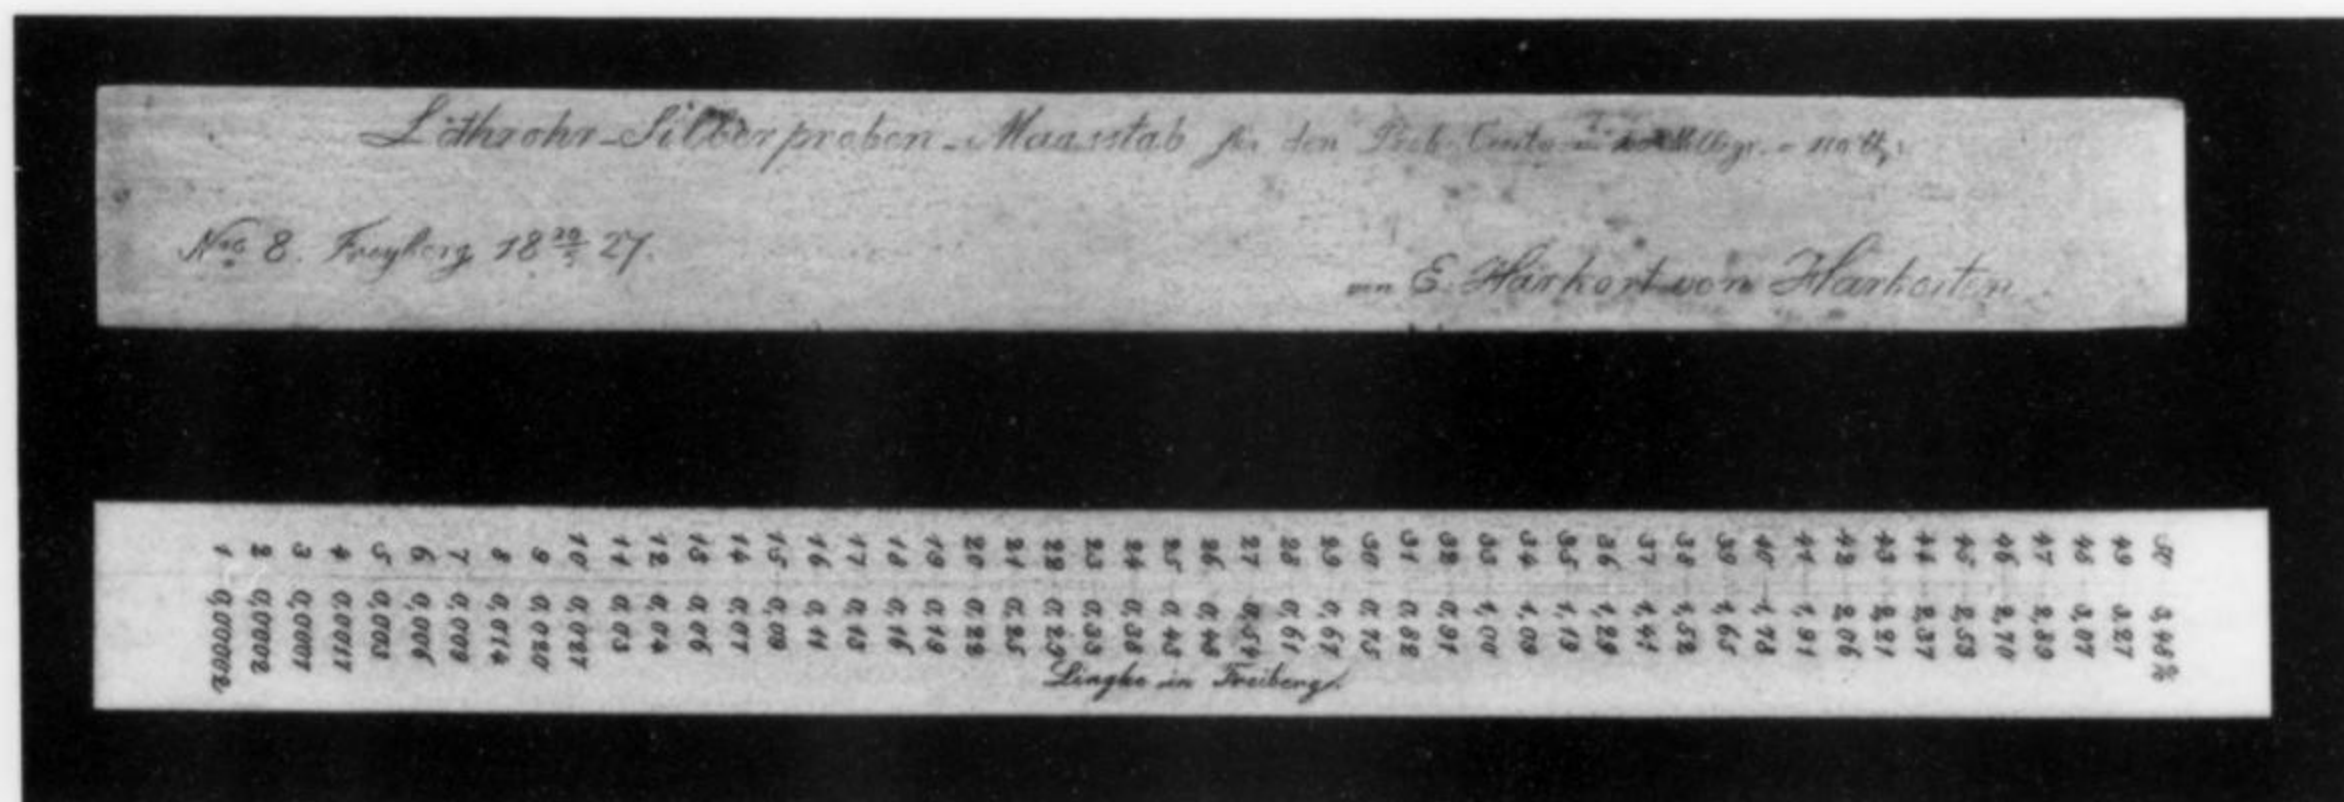 Löthrohr-Silberproben-Maasstab für den
Nro 8. Freyberg 18 27.
von E. Harkort von Harkorten
1 0,00002
2 0,0002
3 0,0007
4 0,0017
5 0,003
6 0,006
7 0,009
8 0,014
9 0,020
10 0,027
11 0,03
12 0,04
13 0,06
14 0,07
15 0,09
16 0,11
17 0,13
18 0,16
19 0,19
20 0,22
21 0,25
22 0,29
23 0,33
24 0,38
25 0,43
26 0,48
27 0,54
28 0,61
29 0,67
30 0,75
31 0,82
32 0,91
33 1,00
34 1,09
35 1,19
36 1,29
37 1,41
38 1,52
39 1,65
40 1,78
41 1,91
42 2,06
43 2,21
44 2,37
45 2,53
46 2,70
47 2,89
48 3,07
49 3,27
50 3,48%
Lingke in Freiberg.